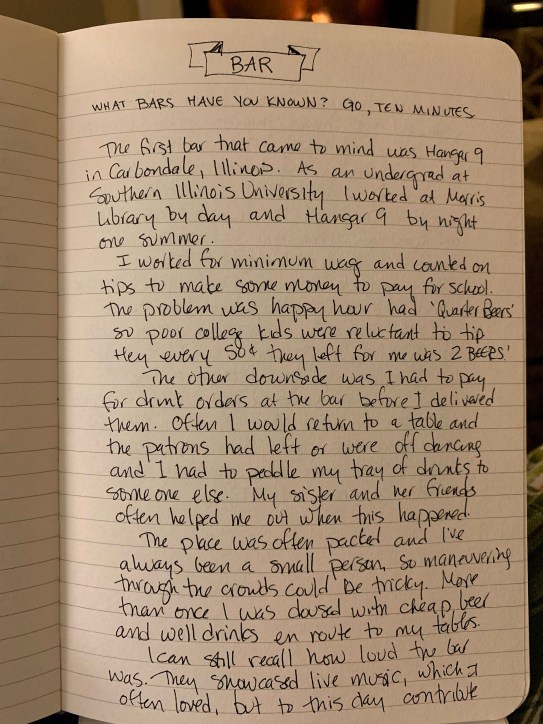 BAR
WHAT BARS HAVE YOU KNOWN? GO, TEN MINUTES
The first bar that came to mind was Hangar 9
in Carbondale, Illinois. As an undergrad at
Southern Illinois University I worked at Morris
Library by day and Hangar 9 by night
one summer.
I worked for minimum wag and counted on
tips to make some money to pay for school.
The problem was happy hour had 'Quarter Beers'
so poor college kids were reluctant to tip
Hey every 50¢ they left for me was 2 BEERS!
The other downside was I had to pay
for drink orders at the bar before I delivered
them. Often I would return to a table and
the patrons had left or were off dancing
and I had to peddle my tray of drinks to
someone else. My sister and her friends
often helped me out when this happened.
The place was often packed and I've
always been a small person, so maneuvering
through the crowds could be tricky. More
than once I was doused with cheap beer
and well drinks en route to my tables.
I can still recall how loud the bar
was. They showcased live music, which I
often loved, but to this day contribute